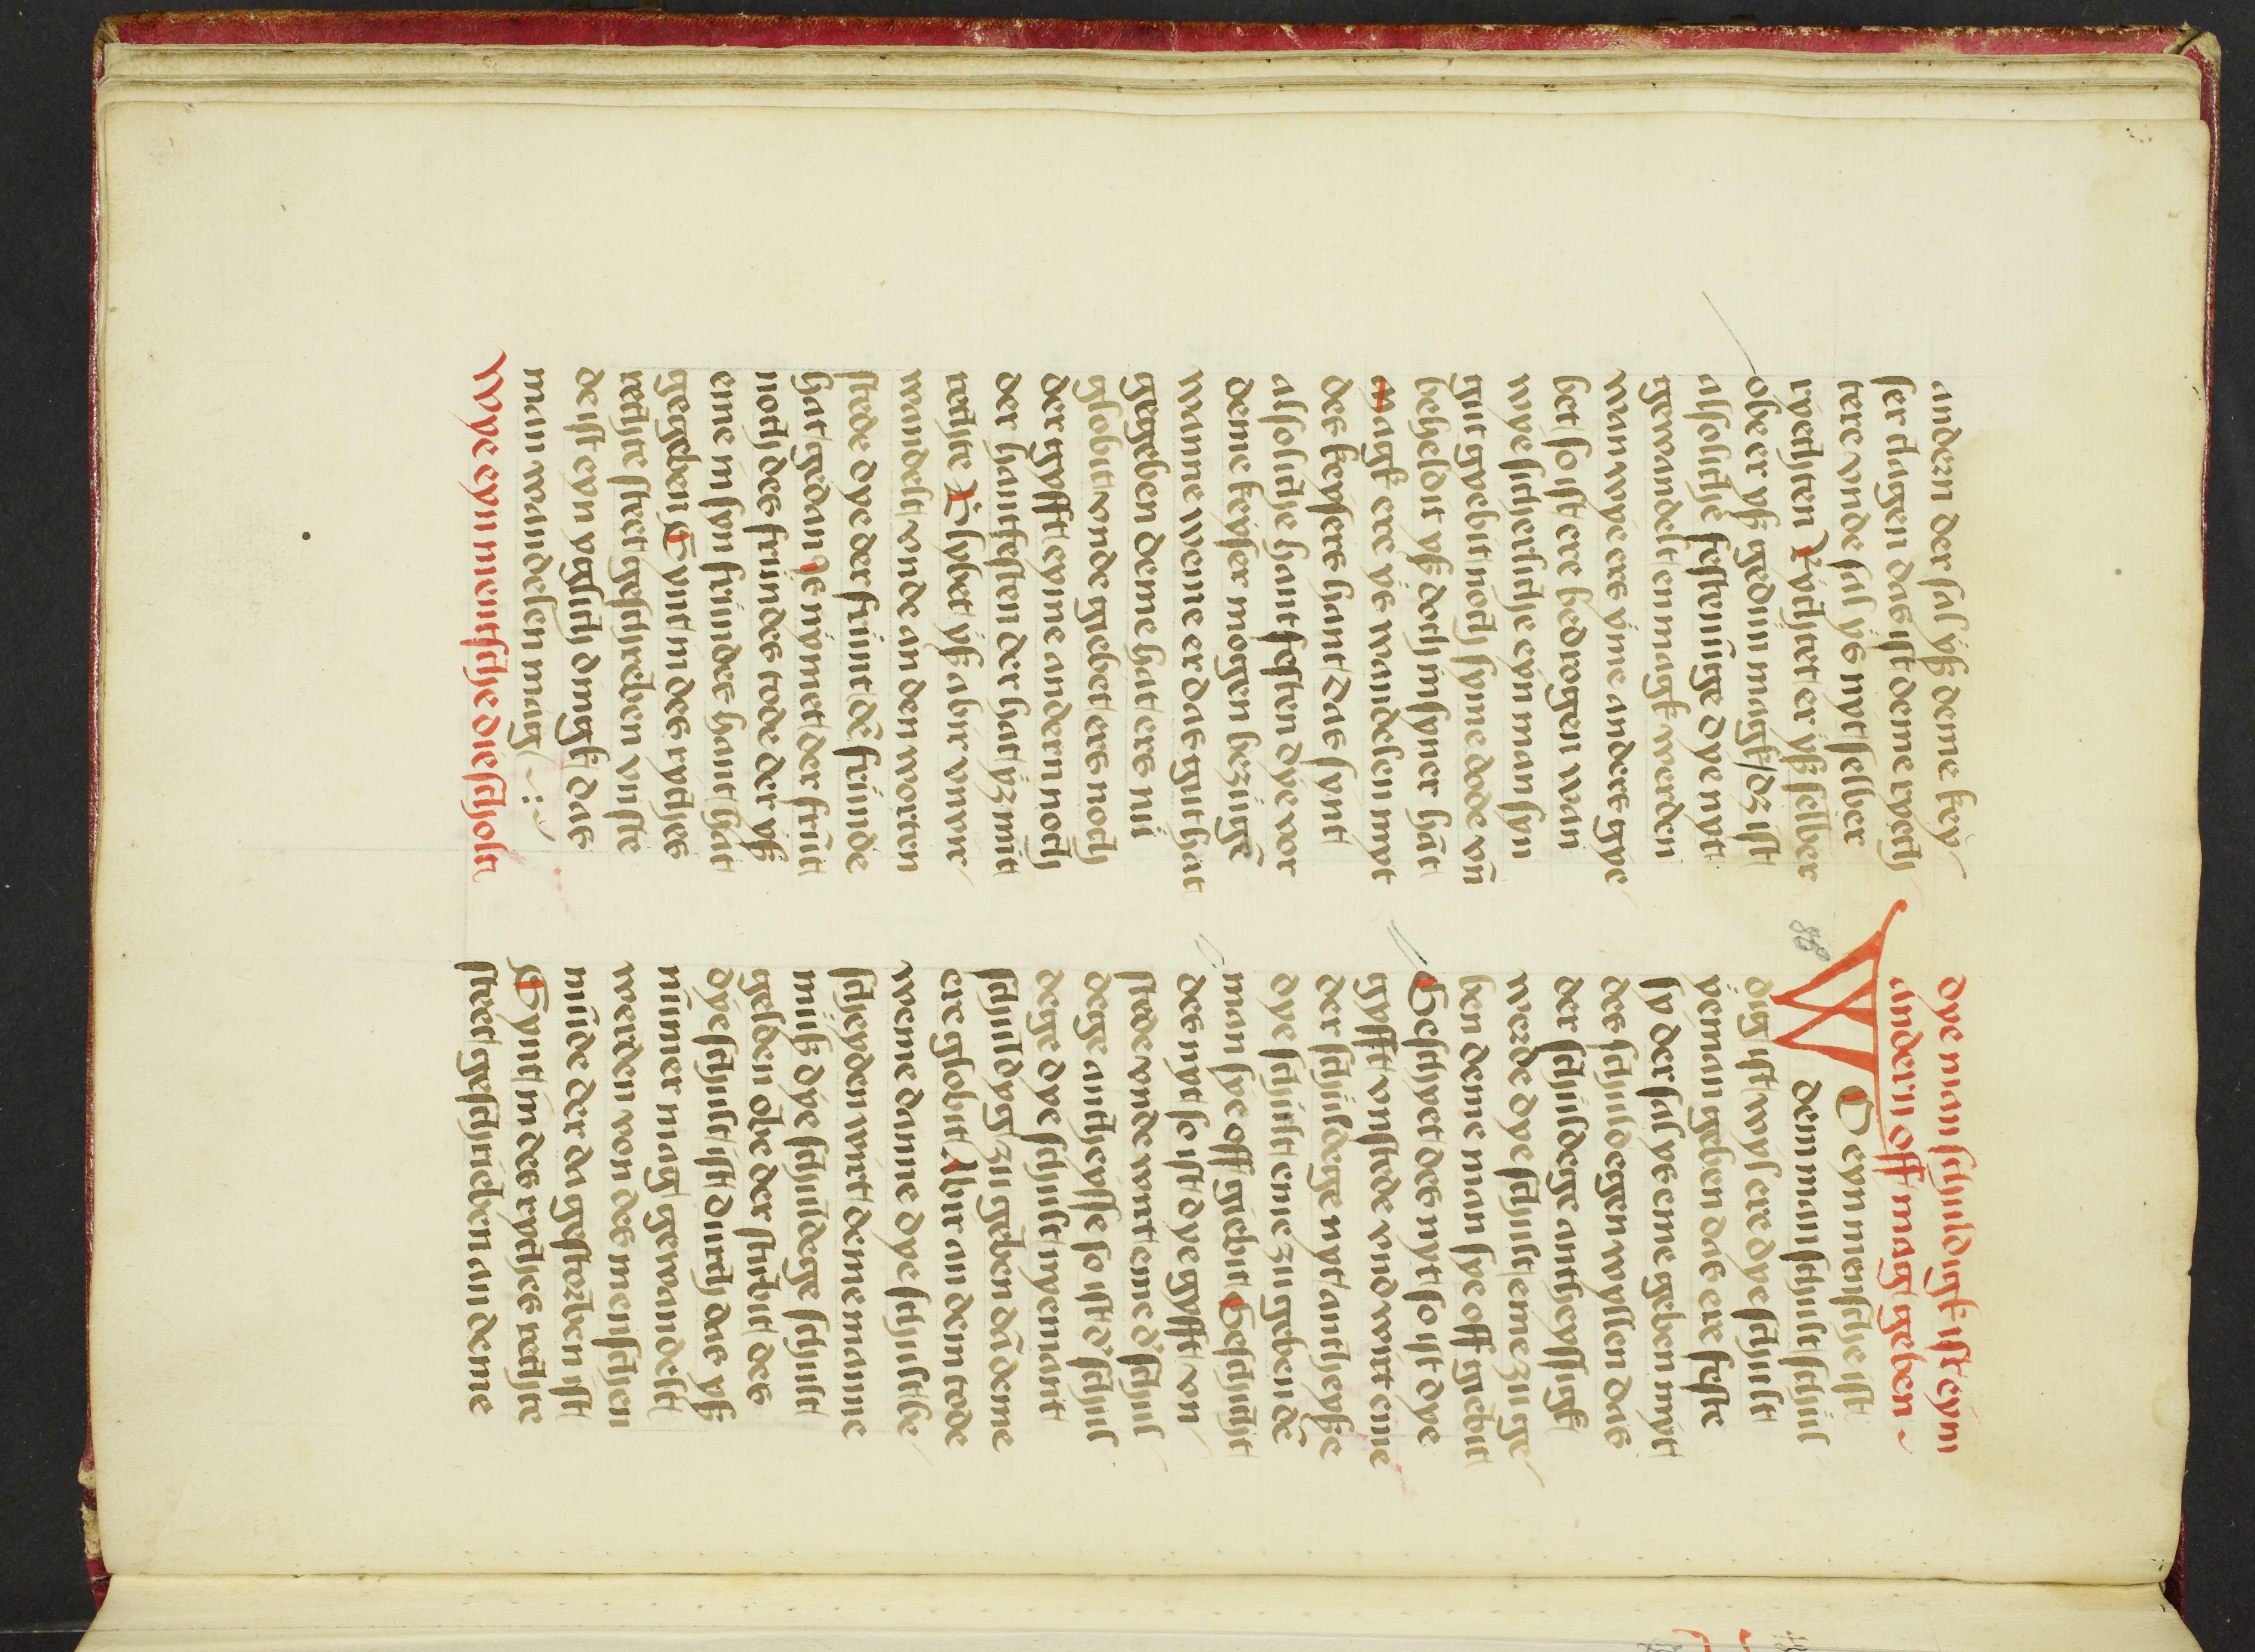 andern der sal vß deme key
ser dagen das ist deme rych
tere vnde sal ys myt selber
rychten Rychtet er vß selber
obe er vß gedun magk / dz ist
alsoliche festunge dye nyt
gewandelt en magk werden
wan wye ers yme andert gye
bet so ist ere bedrogen wan
wye sicherliche eyn man syn
gut gyebit noch syme dode vn̄
beheldit vß doch in syner hāt
magk ere ys wandelen myt
des keysers hant Das synt
alsoliche hantfesten dye vor
deme keyser mogen bezuge
wanne weme er das gut hat
gegeben deme hat ers nu
globit vnde gyebet ers noch
der gyfft eyme andern noch
der hantfesten der hat yz mit
rechte Blybet yß abir vnvir
wandelt vnde an den worten
stede dye der frunt de frunde
hat gedan Es nymet der frūt
noch des frundes tode der vß
eme in syn frundes hant hat
gegeben Synt in des ryches
rechte steet geschreben vnste
de ist eyn yglich dingk das
man wandelen mag
Wye eyn mentsche die scholt
dye man schuldigk ist eym
andern off mag geben
88
W
O eyn mensche ist
dem man schult schul
dig ist wyl ere dye schult
yemant geben das ere feste
sy der sal ys eme geben myt
des schuldegen wyssen das
der schuldege antheyssigk
werde dye schult eme zu ge
ben deme man sye off gyebit
Geschyet des nyt so ist dye
gyfft vnstede vnd wirt eme
der schuldege nyt antheyße
dye schult eme zu gebende
man sye off gyebit Geschyt
des nyt so ist dye gyfft vn
stede vnde wirt eme d' schul
dege antheysse so ist d' schul
dege dye schult nyemant
schuldyg zu geben dā deme
ere globit Abir an dem tode
weme danne dye schult be
scheyden wirt deme manne
muß dye schuldege schult
gelden obe der stirbit des
dye schult ist durch das vß
nummer mag gewandelt
werden von des menschen
munde der da gestorben ist
Synt in des ryches rechte
steet geschrieben an deme